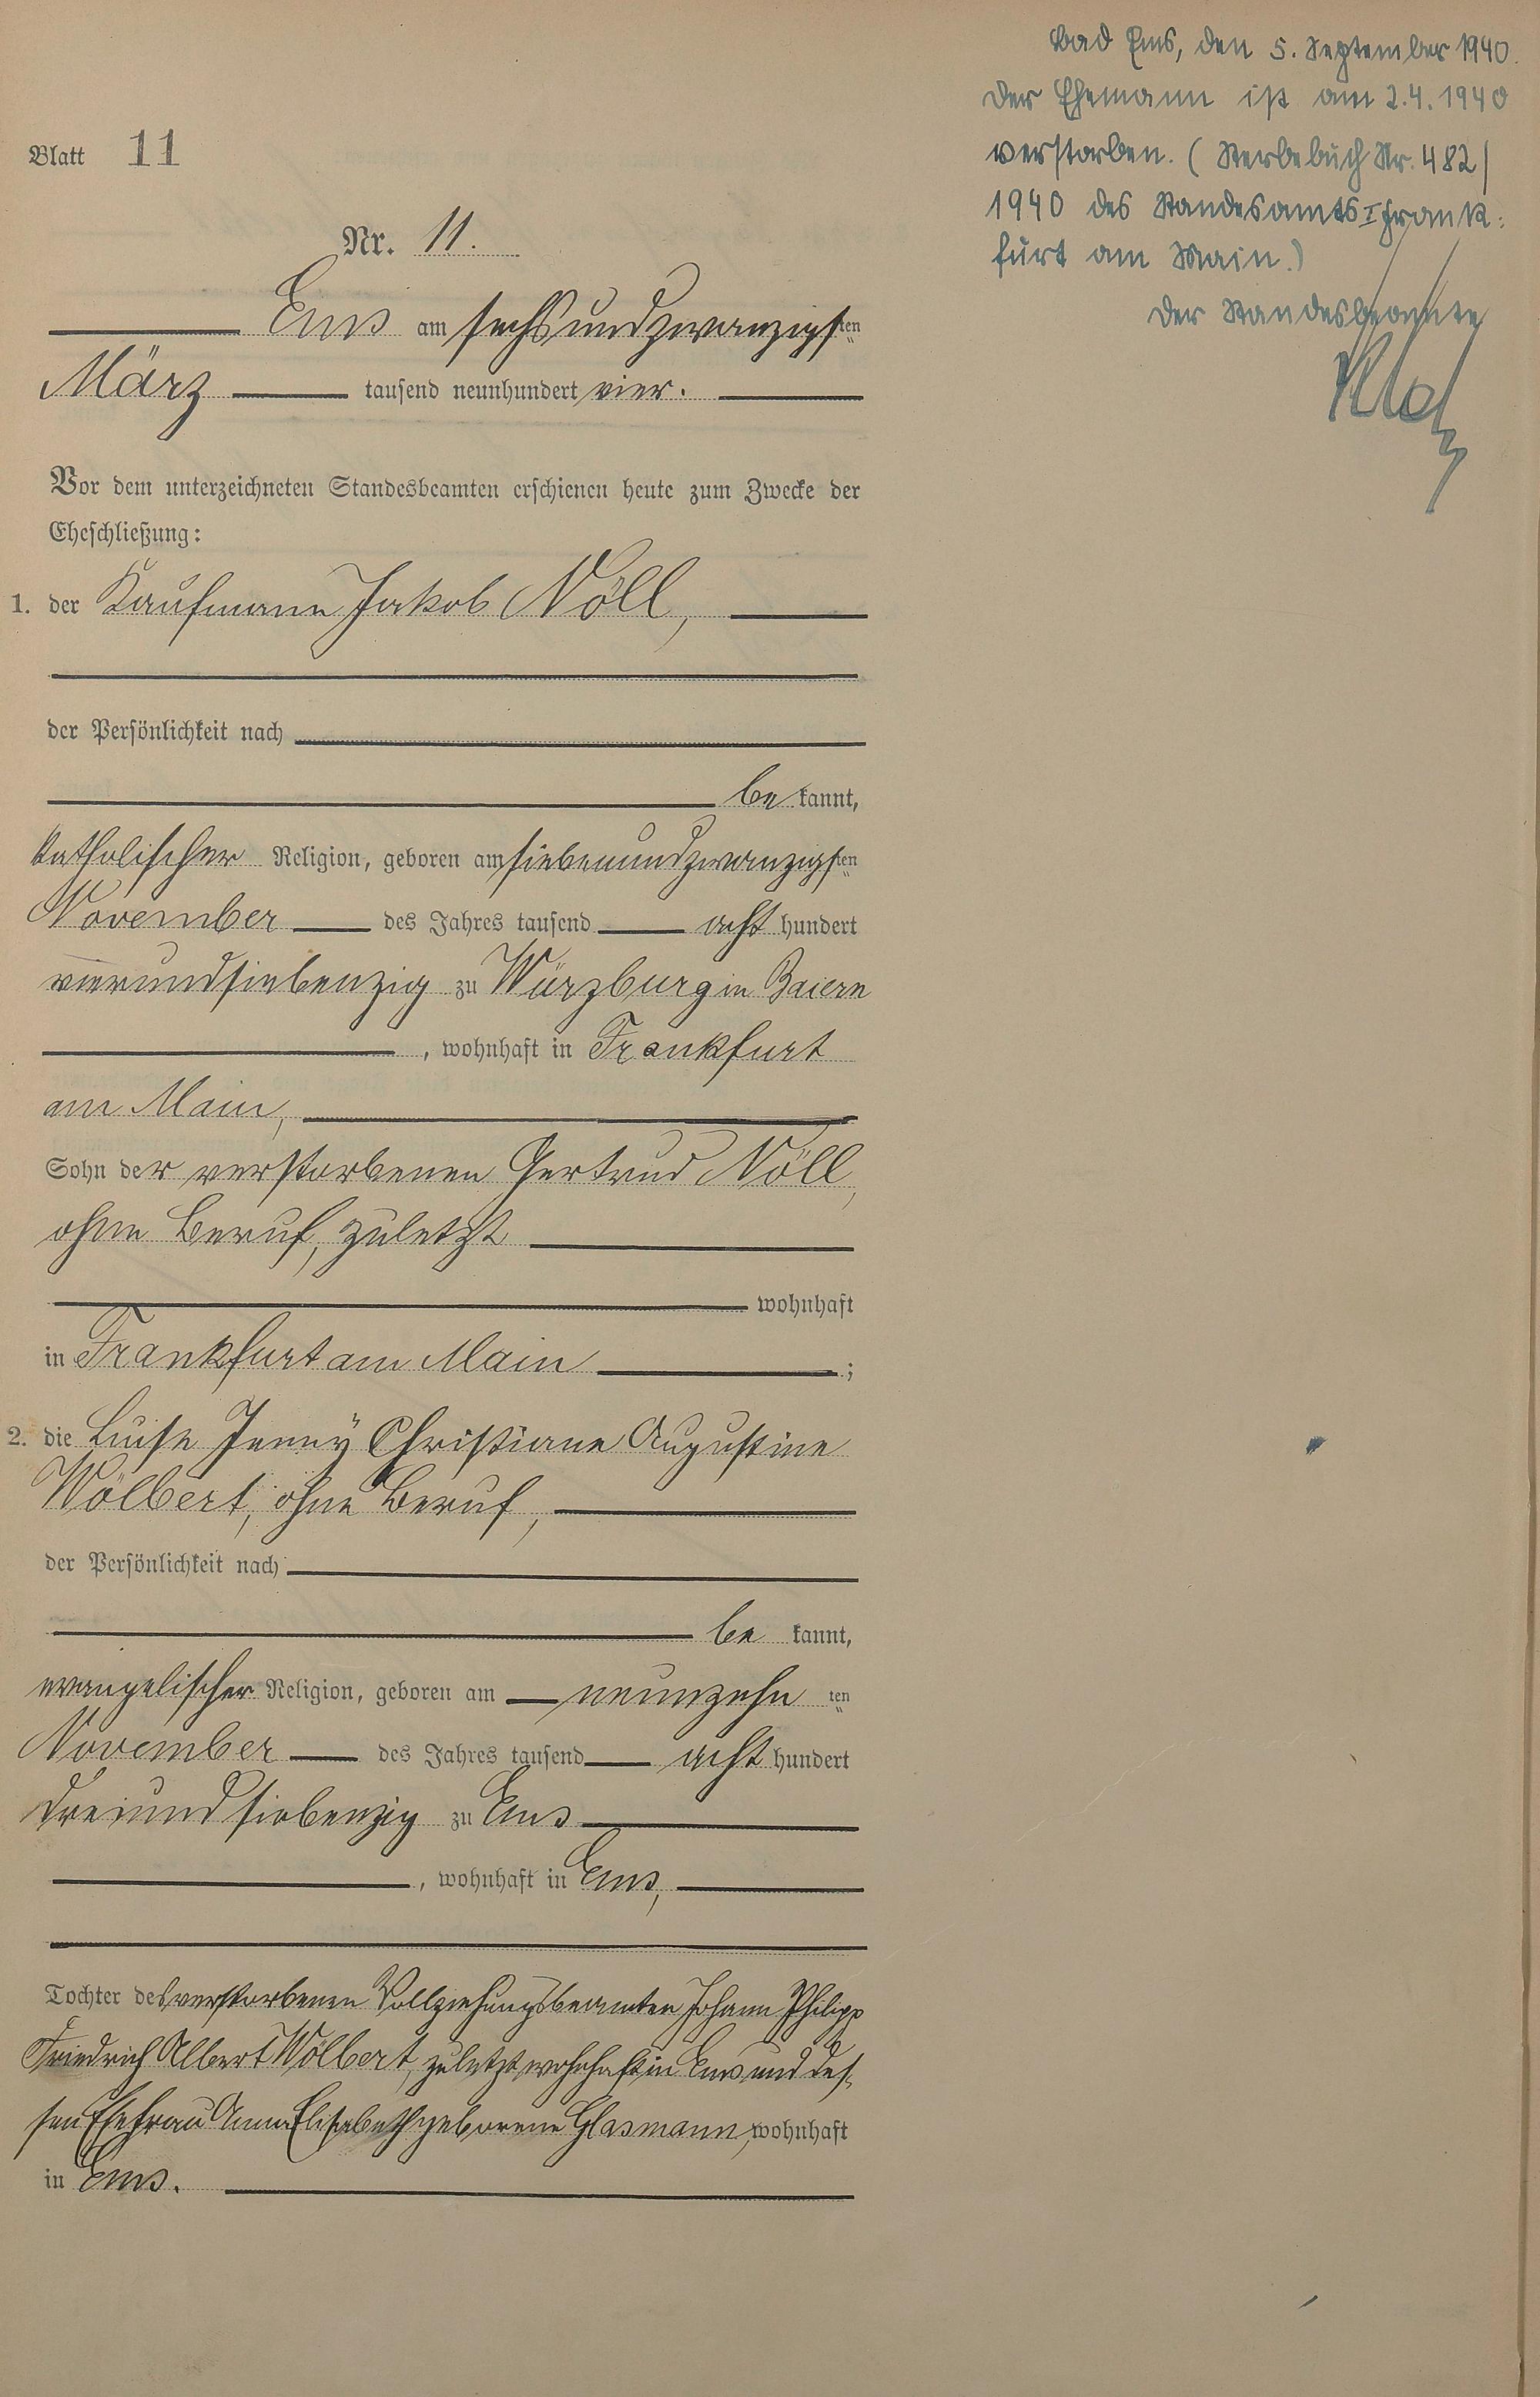 Bad Ems, den 5. September 1940.
Der Ehemann ist am 2.4.1940
verstorben. (Sterbebuch Nr. 482/
1940 des Standesamts I Frank-
furt am Main.)
Der Standesbeamte
Blatt 11
Nr. 11.
Ems am sechsundzwanzigsten
März tausend neunhundert vier.
Vor dem unterzeichneten Standesbeamten erschienen heute zum Zwecke der
Eheschließung:
1. der Kaufmann Jakob Nöll,
der Persönlichkeit nach
be kannt,
katholischer Religion, geboren am siebenundzwanzigsten
November des Jahres tausend acht hundert
vierundsiebenzig zu Würzburg in Baiern
, wohnhaft in Frankfurt
am Main,
Sohn der verstorbenen Gertrud Nöll,
ohne Beruf, zuletzt
wohnhaft
in Frankfurt am Main ;
2. die Luise Jenny Christiane Augustine
Wölbert, ohne Beruf,
der Persönlichkeit nach
be kannt,
evangelischer Religion, geboren am neunzehn ten
November des Jahres tausend acht hundert
dreiundsiebenzig zu Ems
, wohnhaft in Ems,
Tochter des verstorbenen Vollziehungsbeamten Johann Philipp
Friedrich Albert Wölbert, zuletzt wohnhaft in Ems und des-
sen Ehefrau Anna Elisabeth geborene Glasmann, wohnhaft
in Ems.